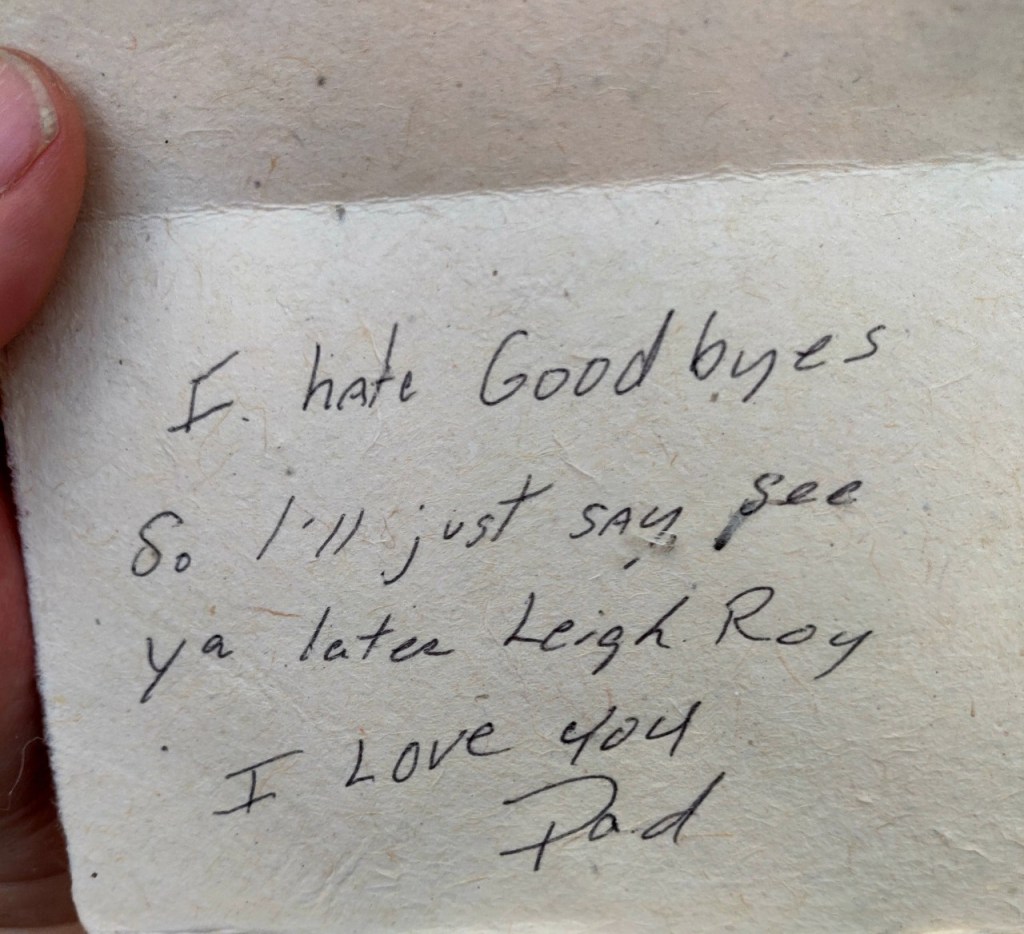 I hate Goodbyes
So I'll just say see
ya later Leigh Roy
I Love you
Dad